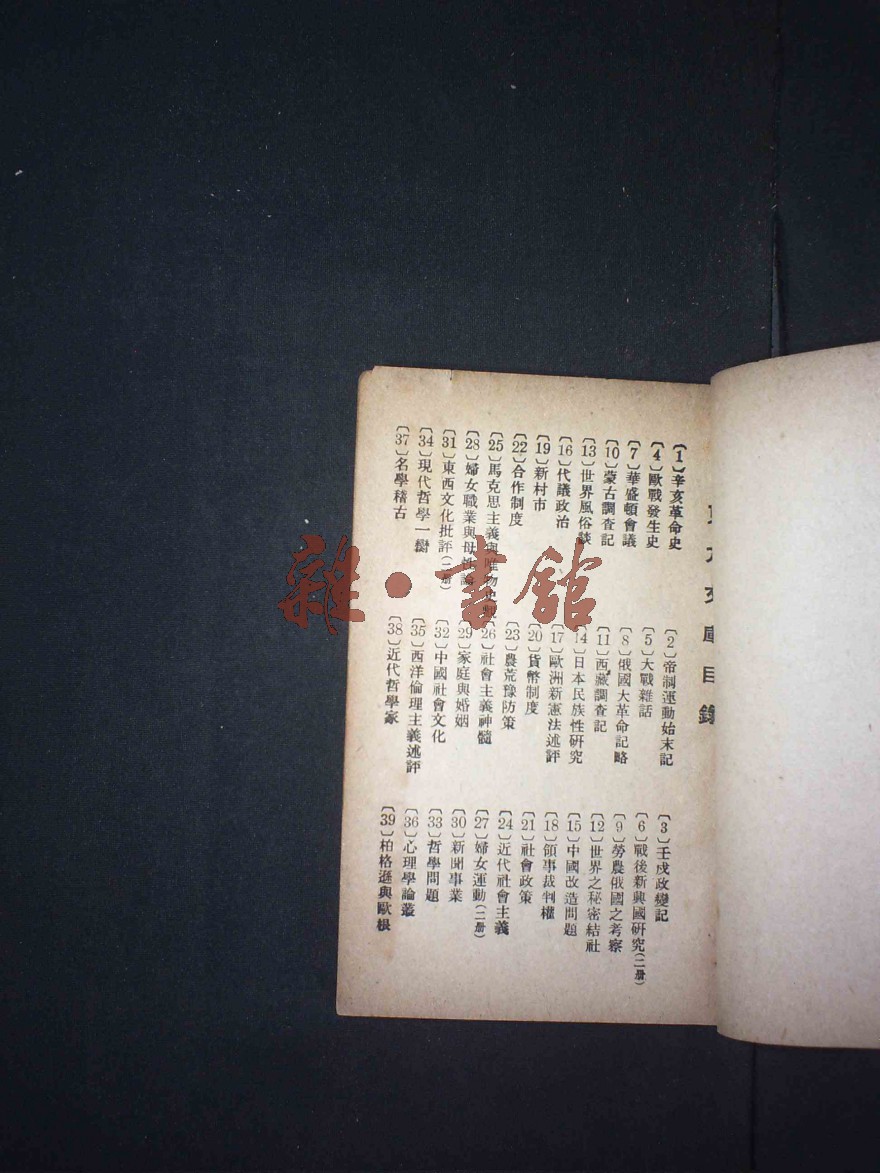 東方文庫目錄
〔1〕辛亥革命史
〔2〕帝制運動始末記
〔3〕壬戌政變記
〔4〕歐戰發生史
〔5〕大戰雜話
〔6〕戰後新興國研究(二册)
〔7〕華盛頓會議
〔8〕俄國大革命記略
〔9〕勞農俄國之考察
〔10〕蒙古調查記
〔11〕西藏調查記
〔12〕世界之秘密結社
〔13〕世界風俗談
〔14〕日本民族性研究
〔15〕中國改造問題
〔16〕代議政治
〔17〕歐洲新憲法述評
〔18〕領事裁判權
〔19〕新村市
〔20〕貨幣制度
〔21〕社會政策
〔22〕合作制度
〔23〕農荒豫防策
〔24〕近代社會主義
〔25〕馬克思主義與唯物史觀
〔26〕社會主義神髓
〔27〕婦女運動(二册)
〔28〕婦女職業與母性論
〔29〕家庭與婚姻
〔30〕新聞事業
〔31〕東西文化批評(二册)
〔32〕中國社會文化
〔33〕哲學問題
〔34〕現代哲學一臠
〔35〕西洋倫理主義述評
〔36〕心理學論叢
〔37〕名學稽古
〔38〕近代哲學家
〔39〕柏格遜與歐根
雜·書館